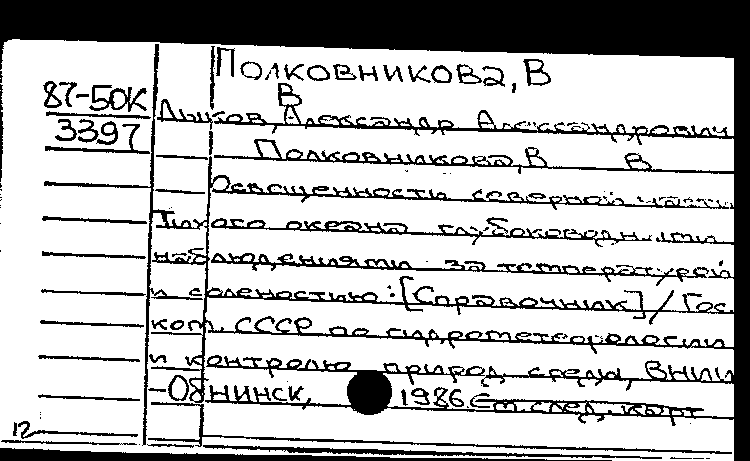 Полковникова, В
В
87-50К
3397
Лыков, Александр Александрович
Полковникова, В В
Освещенности северной части
Тихого океана глубоководными
наблюдениями за температурой
и соленостию: [Справочник] / Гос.
ком. СССР по гидрометеорологии
и контролю природ. среды, ВНИИ
-Обнинск, 1986 См. след. карт
12